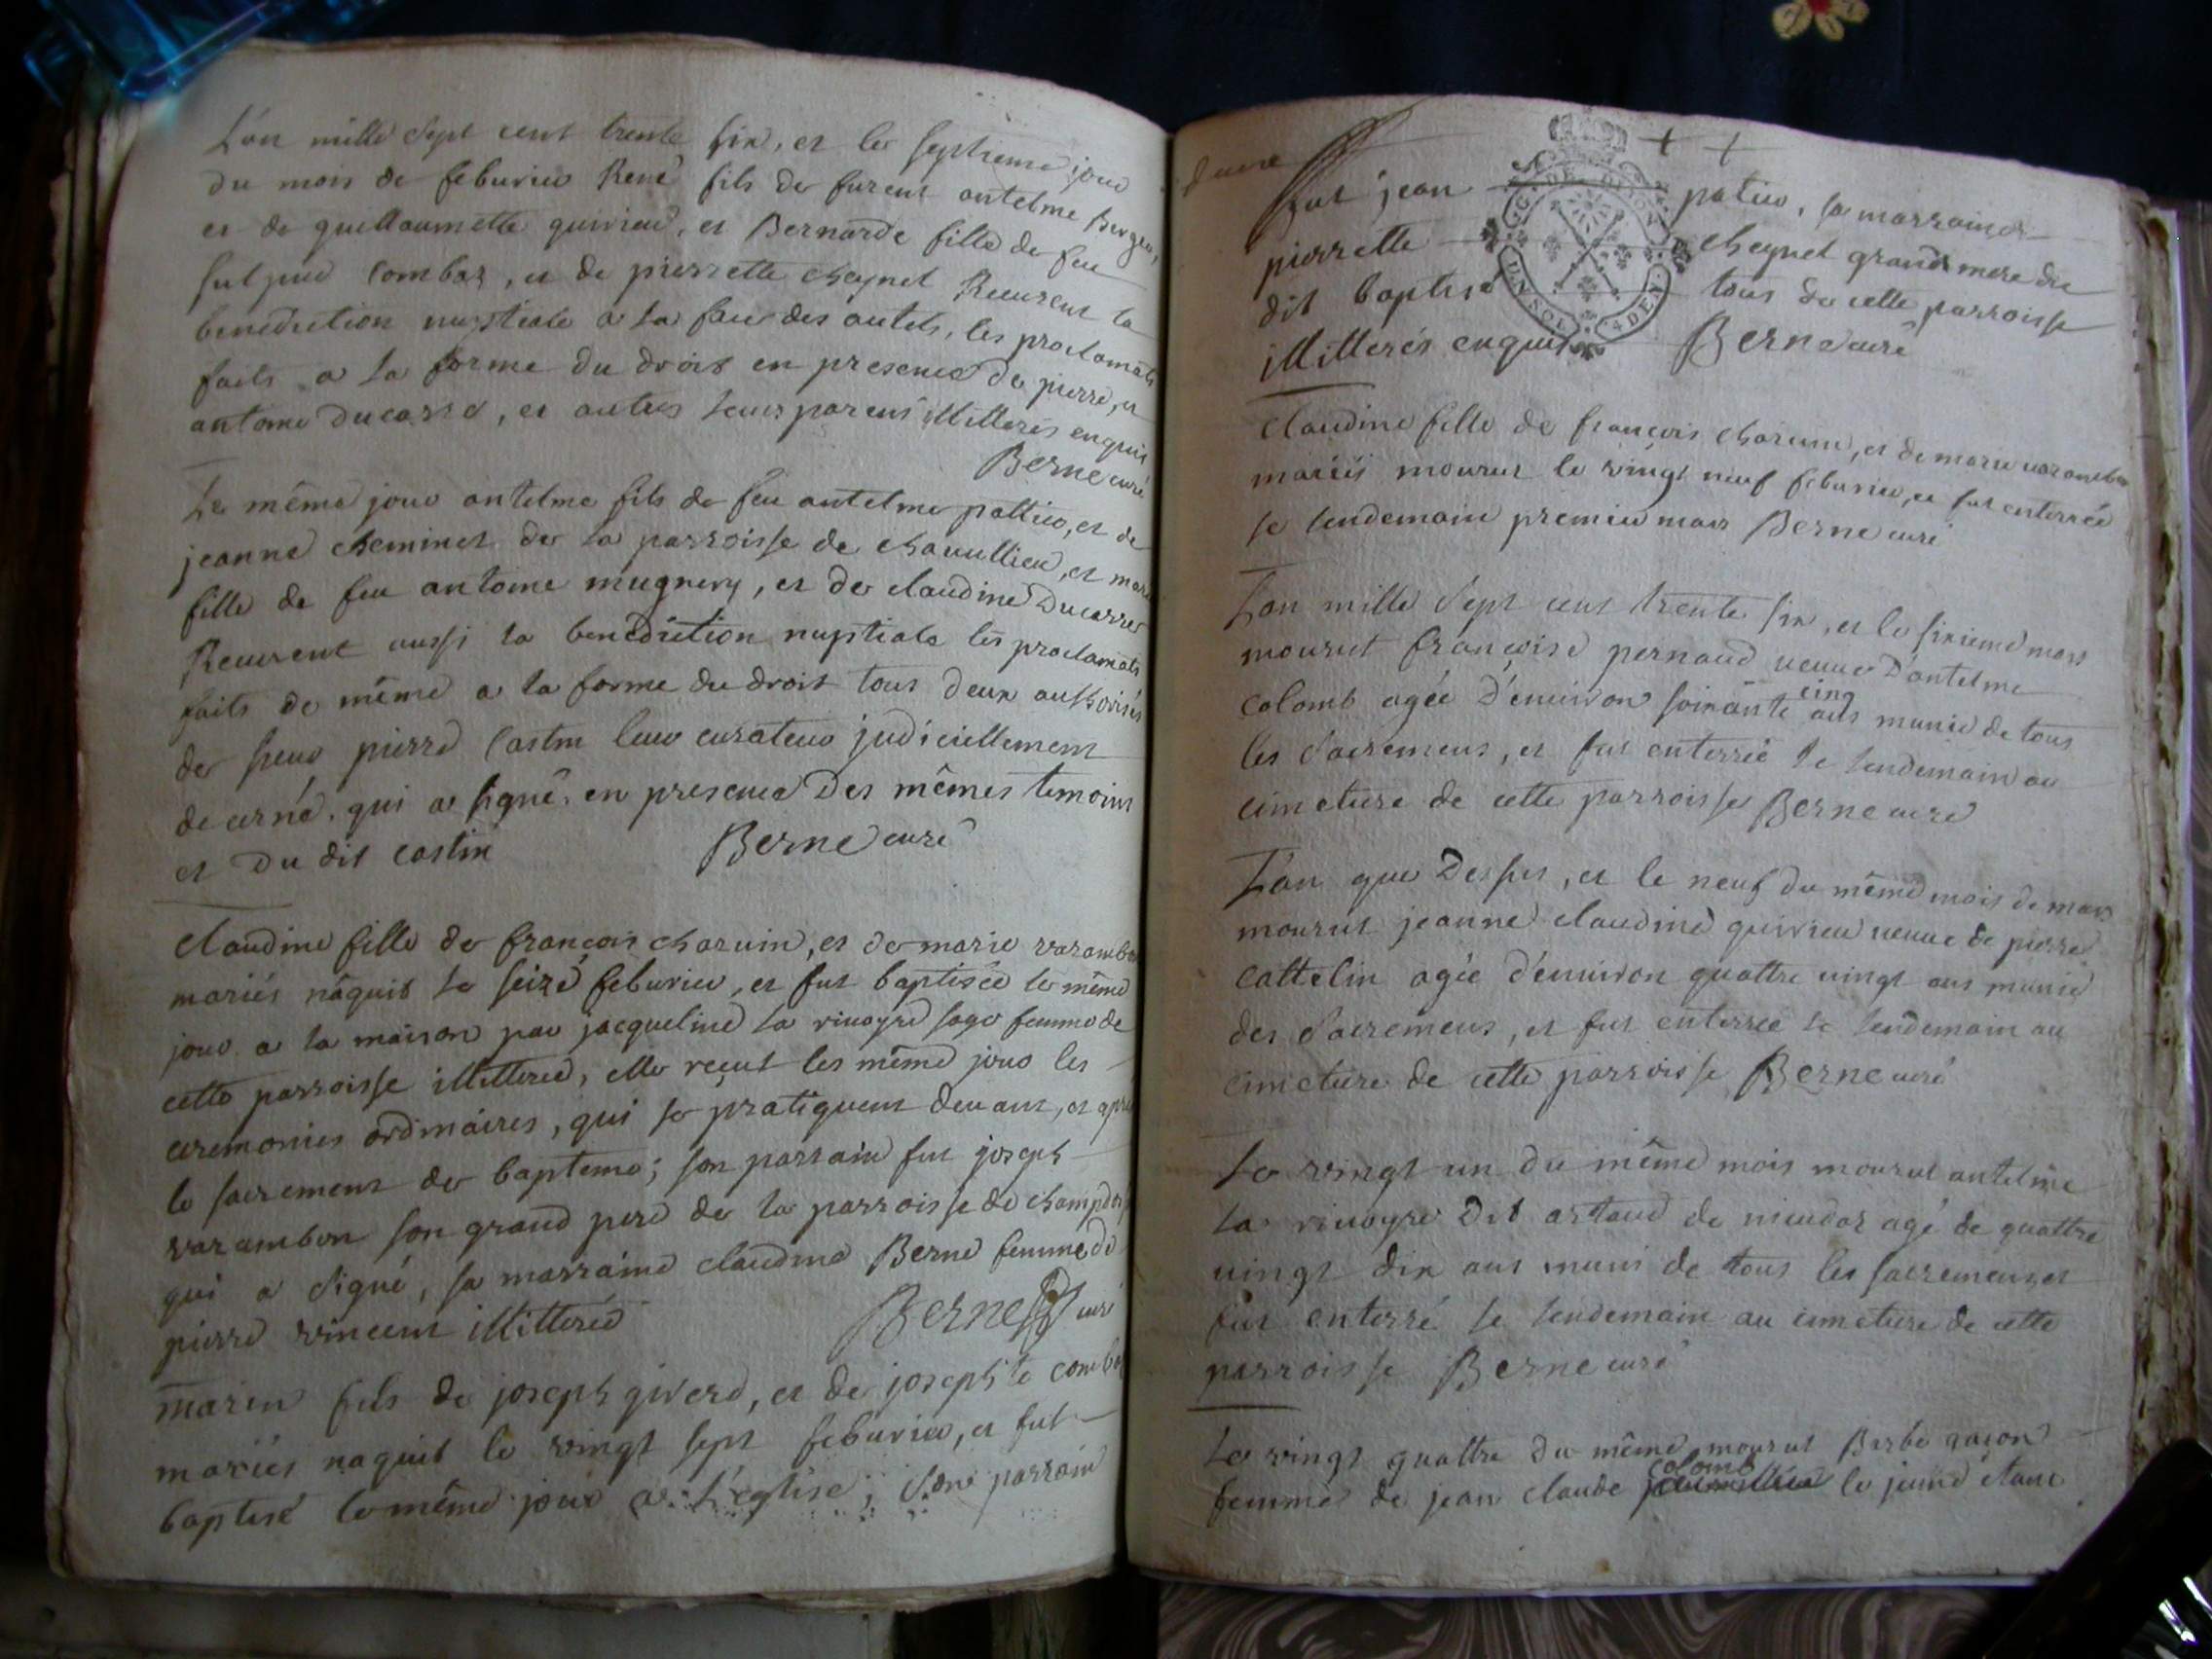 L'an mille sept cent trente six, et le septieme jour
du mois de feburier René fils de furent antelme Berger,
et de guillaumette quivieu, et Bernarde fille de feu
sulpice Combaz, et de pierrette cheynel Receurent la
benediction nuptiale a la face des autels, les proclamats
faits a la forme du droit en presence de pierre, et
antome Ducarre, et autres leurs parens illitterés enquis
Berne curé
Le même jour antelme fils de feu antelme pattier, et de
jeanne cheminet de la parroisse de chanullieu, et marie
fille de feu antome mugnery, et de claudine Ducarre
Receurent aussi la benediction nuptiale les proclamats
faits de même a la forme du droit tous deux authorisés
de sieur pierre Castin leur curateur judiciellement
decerné, qui a signé, en presence Des mêmes temoins
et Du dit castin Berne curé
claudine fille de françois charuin, et de marie varambon
mariés nâquit le seize feburier, et fut baptisée le même
jour a la maison par jacqueline la riuoyre sage femme de
cette parroisse illitterée, elle reçut les même jour les
ceremonies ordinaires, qui se pratiquent deuant, et apres
le sacrement de bapteme; son parrain fut joseph
varambon son grand pere de la parroisse de champdor
qui a signé, sa marraine claudine Berne femme de
pierre vincent illitterée Berne curé
marin fils de joseph giverd, et de josephte combaz
mariés naquit le vingt sept feburier, et fut
baptisé le même jour a l'eglise; son parrain
fut jean patier, sa marraine
pierrette cheynel grand mere du
dit baptisé tous de cette parroisse
illitterés enquis Berne curé
G. DE DIJON
UN SOL 4 DEN.
claudine fille de françois charuin, et de marie varambon
mariés mourut le vingt neuf feburier, et fut enterrée
le lendemain premier mars Berne curé
L'an mille sept cent trente six, et le sixieme mars
mourut françoise pernaud veuue d'antelme
Colomb agée d'enuiron soixante cinq ans munie de tous
les sacremens, et fut enterrée le lendemain au
cimetiere de cette parroisse Berne curé
L'an que Dessus, et le neuf du même mois de mars
mourut jeanne claudine quivieu veuue de pierre
Cattelin agée d'enuiron quattre vingt ans munie
des sacremens, et fut enterrée le lendemain au
cimetiere de cette parroisse Berne curé
Le vingt un du même mois mourut antelme
la riuoyre Dit artaud de mieudaz agé de quattre
vingt dix ans muni de tous les sacremens, et
fut enterré le lendemain au cimetiere de cette
parroisse Berne curé
Le vingt quattre du même mourut Barbe gaçon
femme de jean claude colomb le jeune étant